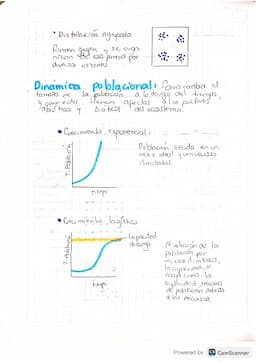 • Distribución agrupada.
Forman grupos y se organizan de esa forma por diversas razones
Dinámica poblacional: Como cambia el
tamaño de la población a lo largo del tiempo,
y como estos tienen efectos a los factores
abióticos y bióticos del ecosistema.
• Crecimiento exponencial:
T. Población
tiempo
Población crece en un
medio ideal y con recursos
ilimitados.
• Crecimiento logístico
T. Población
Capacidad
de carga
tiempo
de la
población por
la capacidad de
carga como la
de población debido
a los recursos.
Powered by CS CamScanner